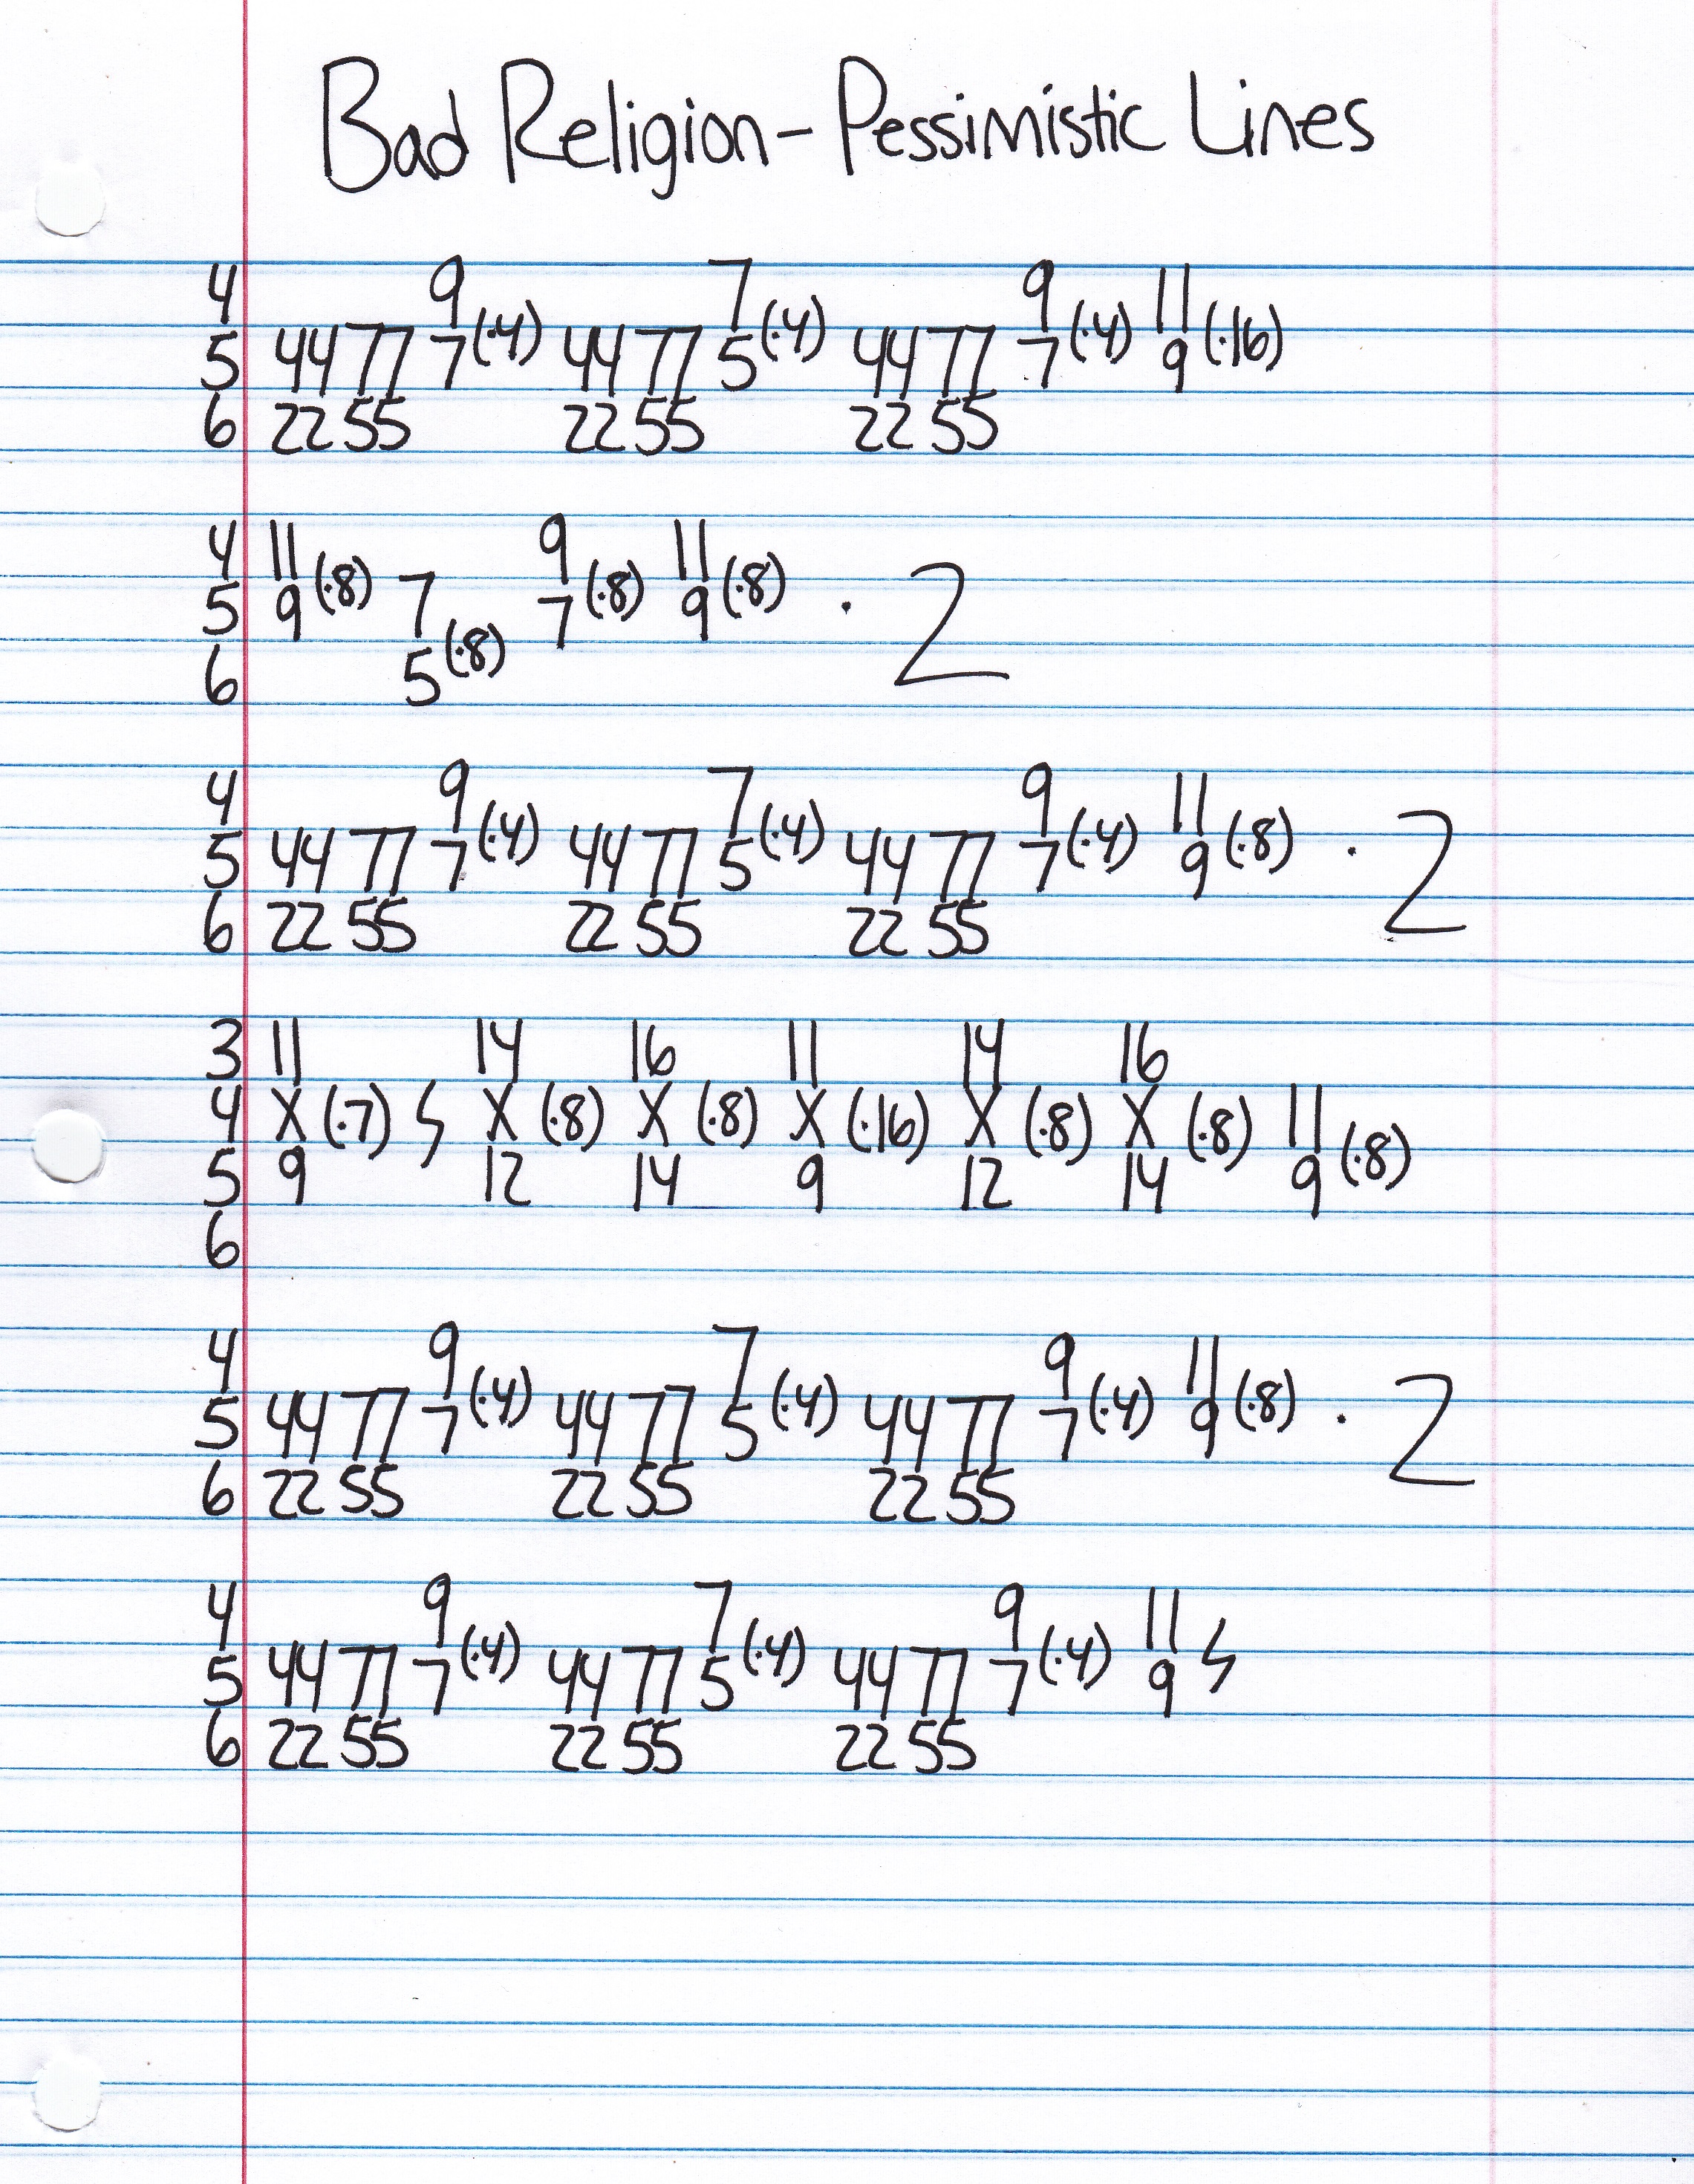 Bad Religion - Pessimistic Lines
4 9 7 9 11
5 44 77 7 (·4) 44 77 5 (·4) 44 77 7 (·4) 9 (·16)
6 22 55 22 55 22 55
4 11 9 11
5 9 (·8) 7 7 (·8) 9 (·8) · 2
6 5 (·8)
4 9 7 9 11
5 44 77 7 (·4) 44 77 5 (·4) 44 77 7 (·4) 9 (·8) · 2
6 22 55 22 55 22 55
3 11 14 16 11 14 16
4 X (·7) X (·8) X (·8) X (·16) X (·8) X (·8) 11
5 9 12 14 9 12 14 9 (·8)
6
4 9 7 9 11
5 44 77 7 (·4) 44 77 5 (·4) 44 77 7 (·4) 9 (·8) · 2
6 22 55 22 55 22 55
4 9 7 9 11
5 44 77 7 (·4) 44 77 5 (·4) 44 77 7 (·4) 9
6 22 55 22 55 22 55